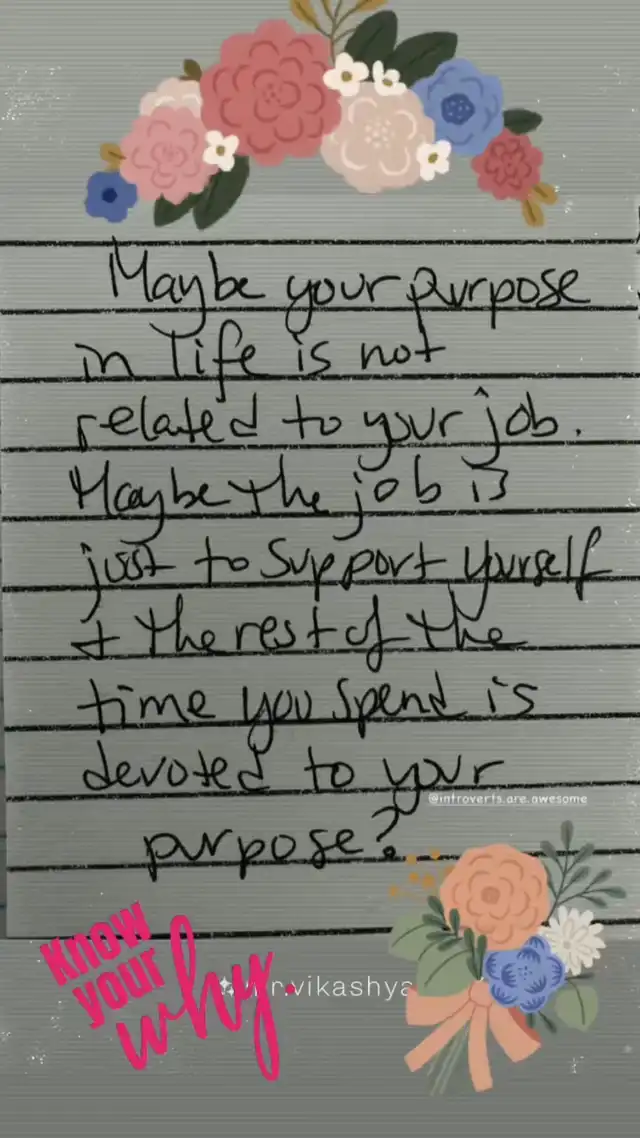 Maybe your purpose
in life is not
related to your job.
Maybe the job is
just to support yourself
+ the rest of the
time you spend is
devoted to your
@introverts.are.awesome
purpose?
Know
your
why.